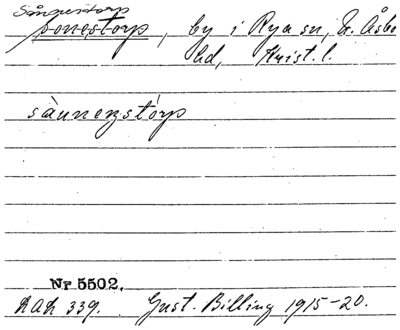 Sånnestorp
Sonestorp, by i Rya sn, N. Åsbo
hd, Krist. l.
sånnenstórp
Nr 5502.
RAÄ 339. Gust. Billing 1915-20.